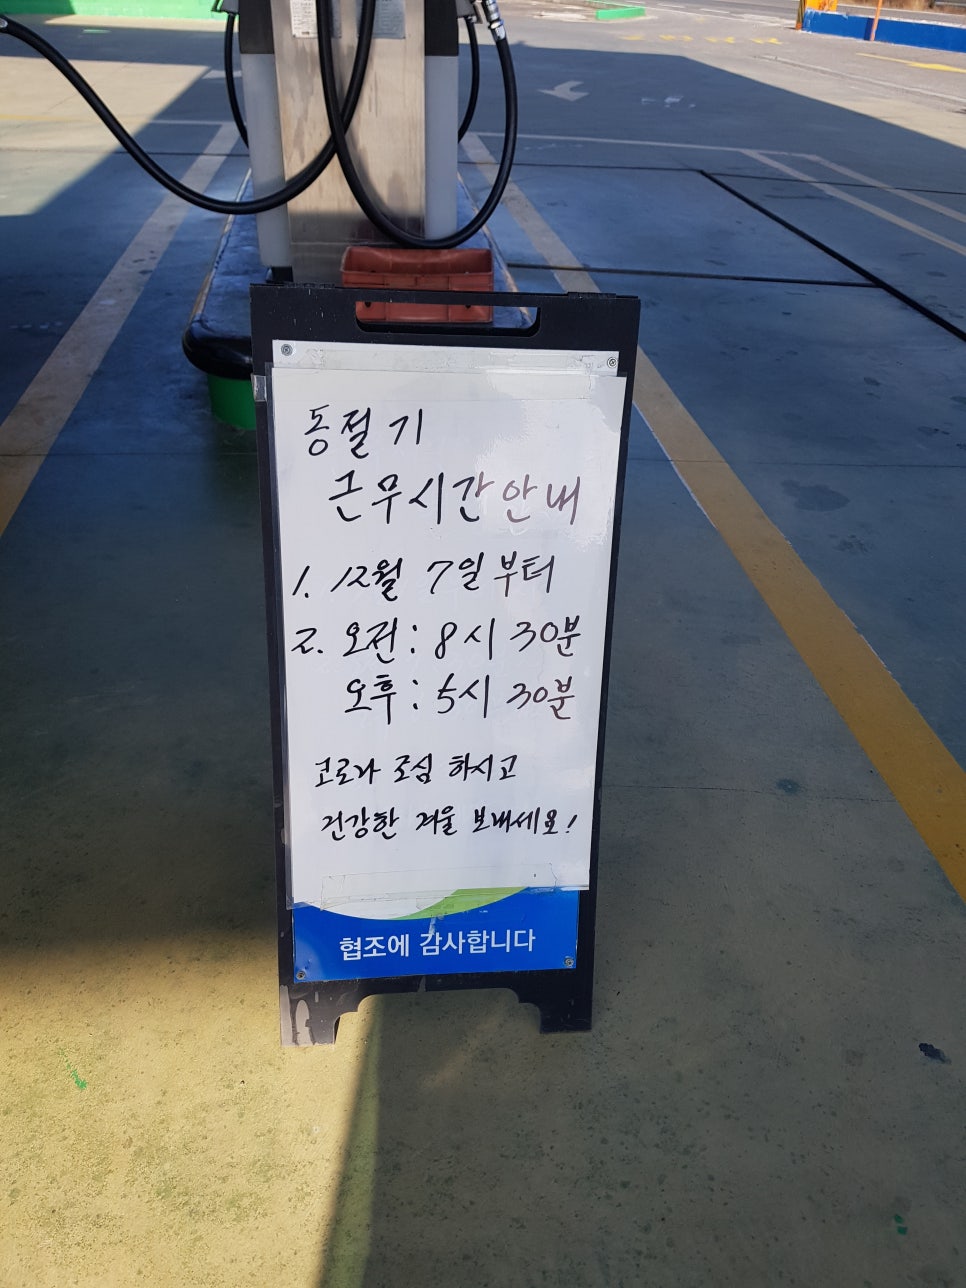 동절기
근무시간안내
1. 12월 7일부터
2. 오전: 8시 30분
오후: 5시 30분
코로나 조심 하시고
건강한 겨울 보내세요!
협조에 감사합니다